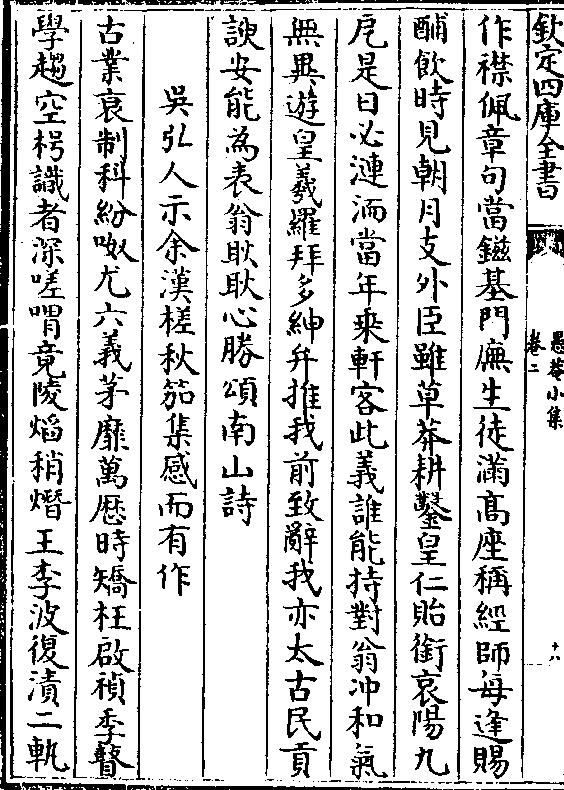 欽定四庫全書
愚菴小集
卷二
十八
作襟佩章句當鎡基門廡生徒滿髙座稱經師每逢賜
酺飲時見朝月支外臣雖草莽耕鑿皇仁貽銜哀陽九
戹是日必漣洏當年乘軒客此義誰能持對翁沖和氣
無異遊皇羲羅拜多紳弁推我前致辭我亦太古民貢
諛安能為表翁耿耿心勝頌南山詩
吳弘人示余漢槎秋笳集感而有作
古業衰制科紛呶尤六義茅靡萬歴時矯枉啟禎季瞽
學趨空枵識者深嗟喟竟陵熖稍熸王李波復漬二軌